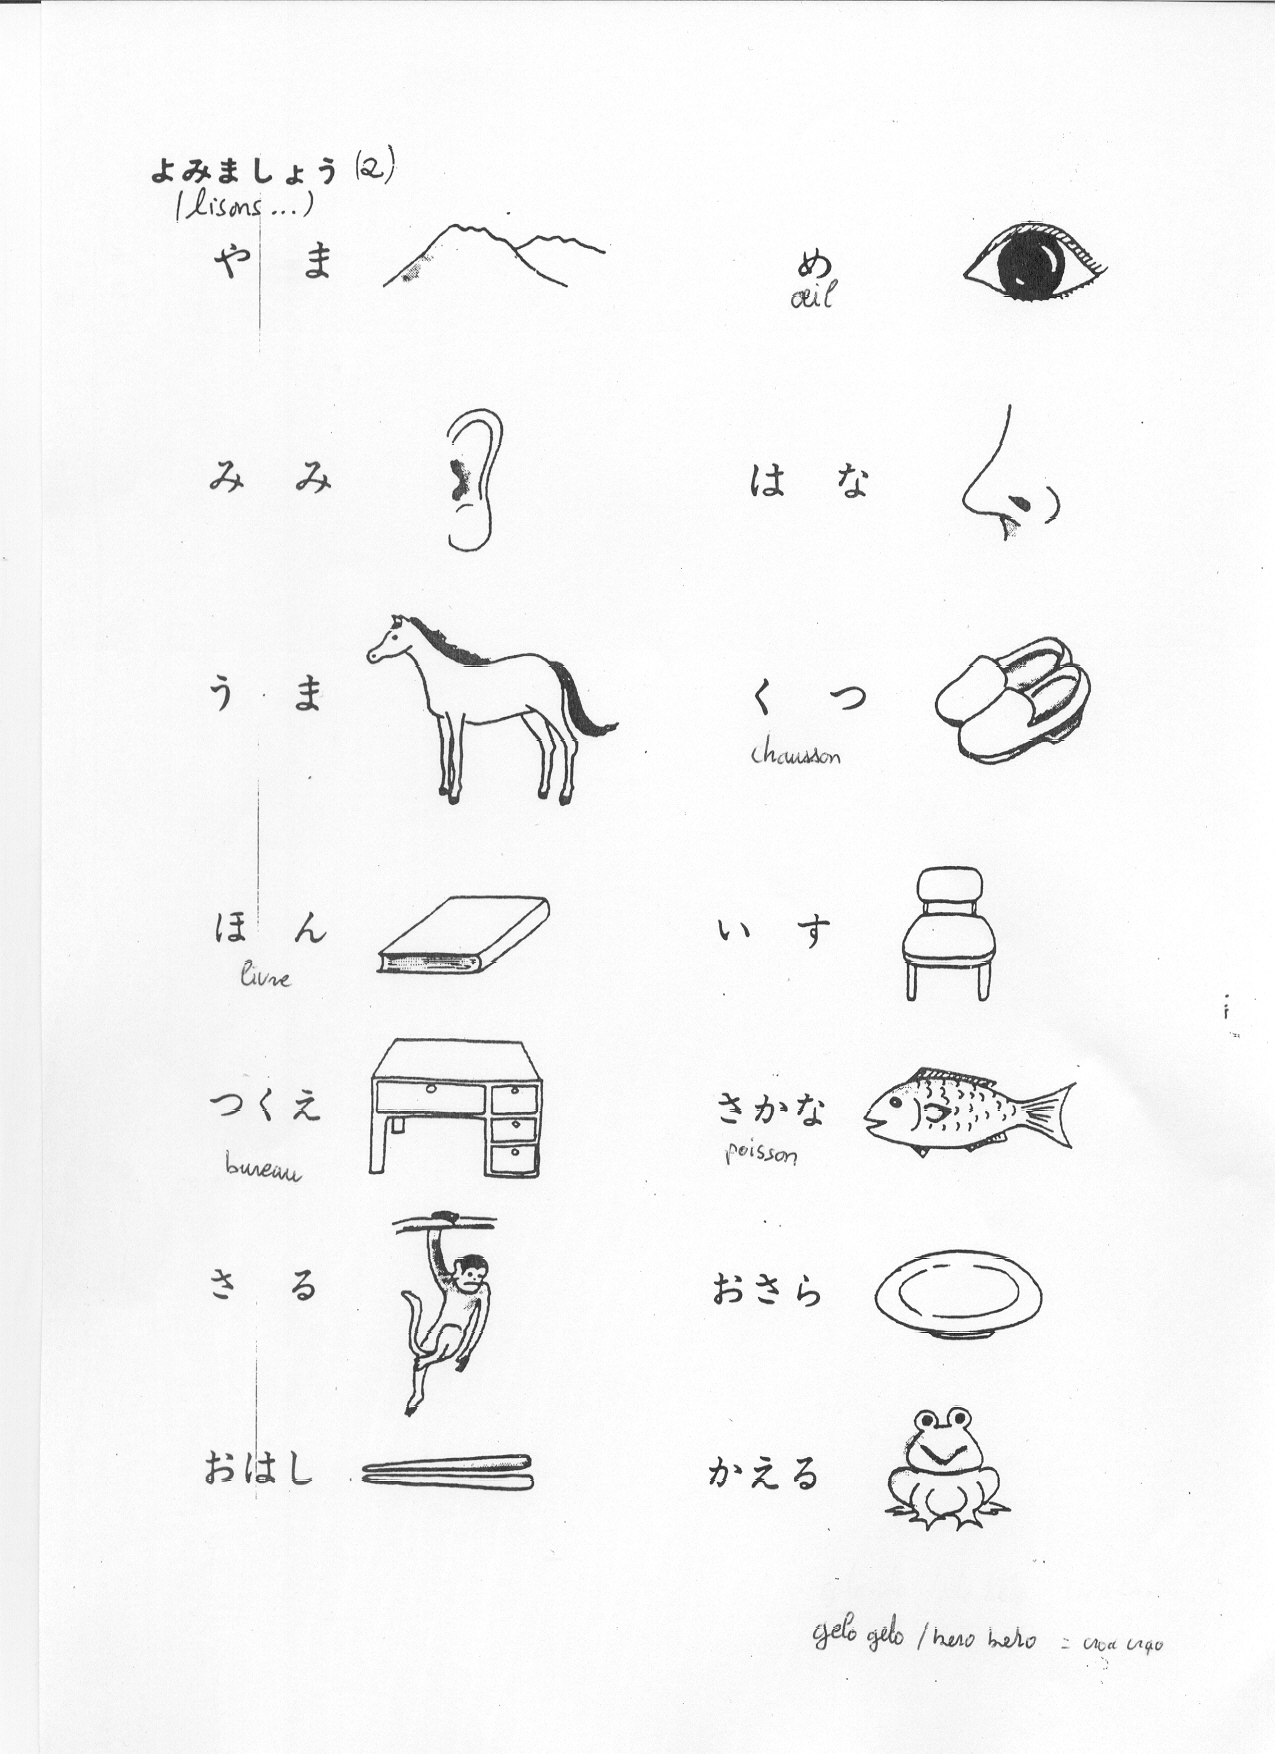 よみましょう (2)
(lisons...)
や ま
め
œil
み み
は な
う ま
く つ
chausson
ほ ん
livre
い す
つくえ
bureau
さかな
poisson
さ る
おさら
おはし
かえる
gelo gelo /